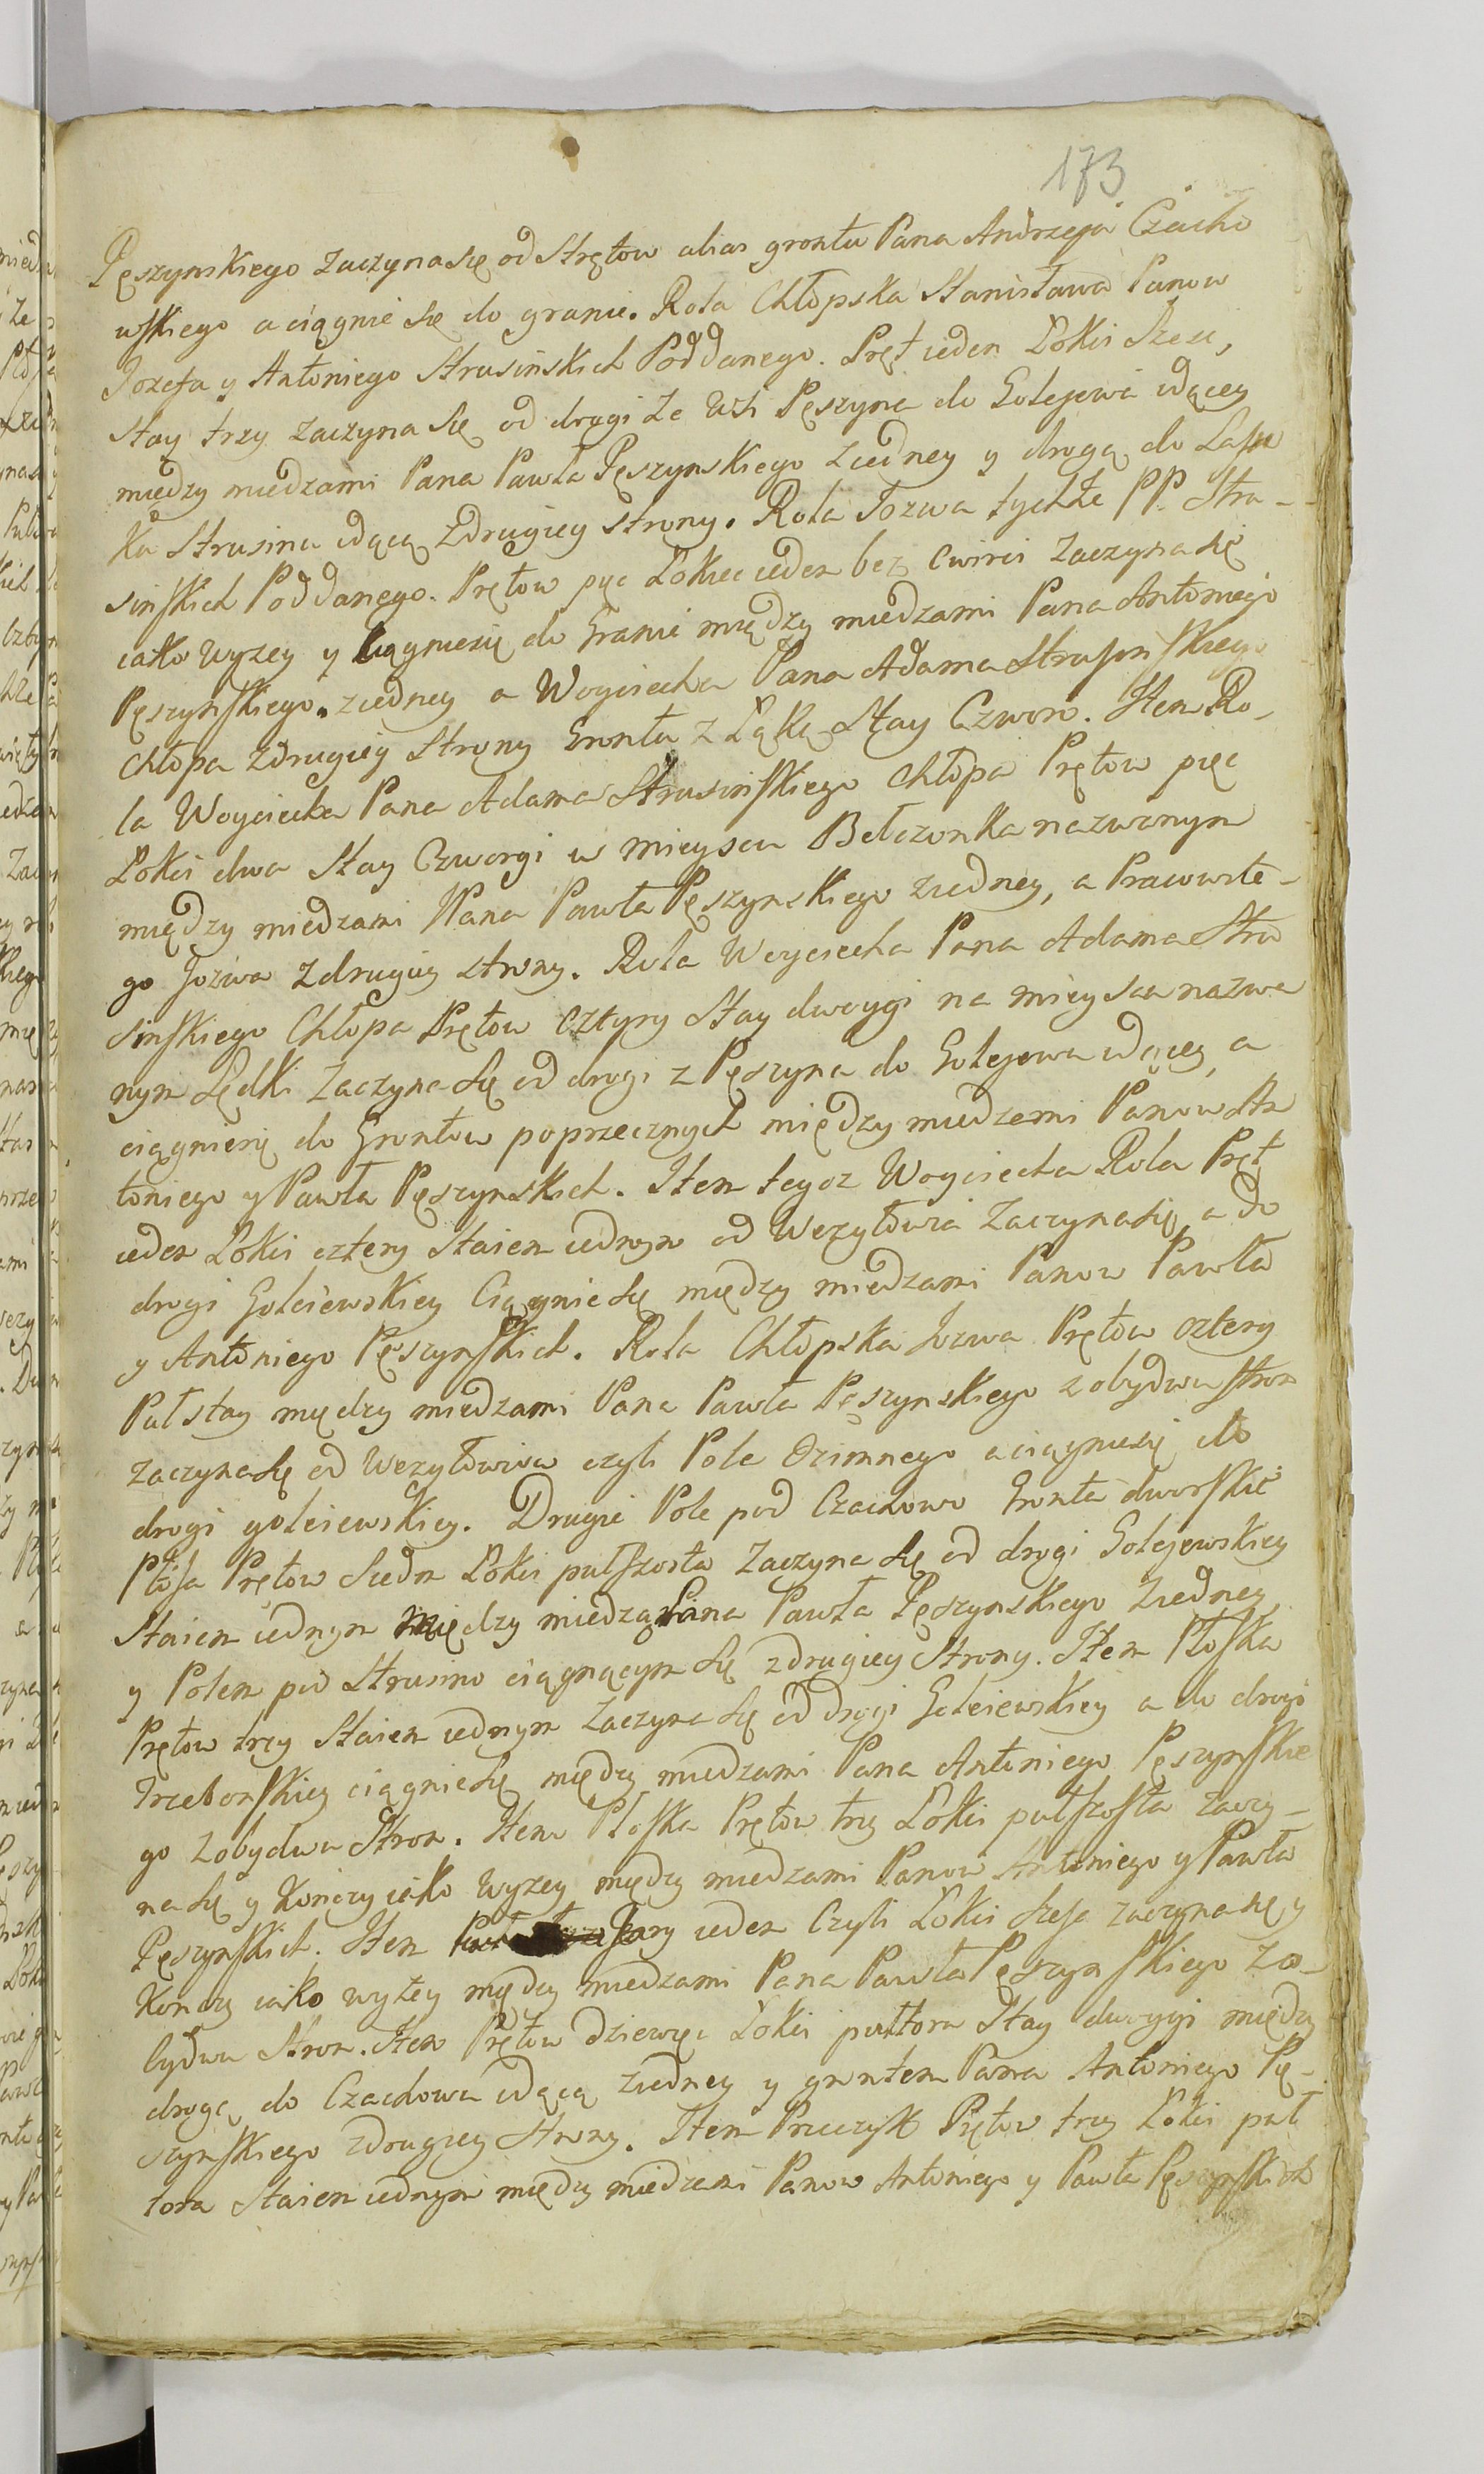 173
Pęszynskiego zaczyna się od Strętow alias grontu Pana Andrzeja Czacho
wskiego a ciągnie się do granic. Rola Chłopska Stanisława Panow
Jozefa y Antoniego Strusinskich Poddanego. Pręt ieden Łokci Szesc,
stay trzy zaczyna się od drogi ze Wsi Pęszyna do Golejewa idącey
między miedzami Pana Pawła Pęszynskiego ziedney y drogą do Lasu
ka Strusina idącą zdrugiey strony. Rola Jozwa tychże PP. Stru-
sinskich Poddanego. Prętow pięc Łokiec ieden bez cwirci zaczyna się
iako wyzey y ciągniesię do Granic między miedzami Pana Antoniego
Pęszynskiego. ziedney a Woyciecha Pana Adama Strusinskiego
chłopa zdrugiey strony Grontu z Łąką Stay Czworo. Item Ro-
la Woyciecha Pana Adama Strusinskiego chłopa Prętow pięc
Łokci dwa Stay Czworgi w mieyscu Bełczonka nazwanym
między miedzami Pana Pawła Pęszynskiego ziedney, a Prawowite-
go Jozwa zdrugiey strony. Rola Woyciecha Pana Adama Stru
sinskiego Chłopa Prętow cztyry Stay dwoygi na mieyscu nazwa
nym Sędki zaczyna się od drogi z Pęszyna do Golejewa idącey, a
ciągniesię do Grontow poprzecznych między miedzami Panow An
toniego y Pawła Pęszynskich. Item tegoz Woyciecha Rola Pręt
ieden Łokci cztery Staien iednym od Wezyłowia zaczyna się a do
drogi Goleiewskiey Ciągnie się między miedzami Panow Pawła
y Antoniego Pęszynskich. Rola Chłopska Jozwa Prętow cztery
Puł stay między miedzami Pana Pawła Pęszynskiego z obydwu stron
zaczyna się od Wezyłowia czyli Pola Ozimnego a ciągniesię do
drogi goleiewskiey. Drugie Pole pod Czachowo Gronta dworskie
Płosa Prętow Siedm Łokci pułszosta zaczyna się od drogi Golejewskiey
Staien iednym między miedzą Pana Pawła Pęszynskiego ziedney,
y Polem pod Strusino ciągnącym się zdrugiey Strony. Item Płoska
Prętow trzy Staien iednym zaczyna się od drogi Goleiewskiey a do drogi
Trzebonskiey ciągnie się między miedzami Pana Antoniego Pęszynskie
go z obydwu Stron. Item Płoska Prętow trzy Łokci pułszosta zaczy-
na się y Konczy iako wyzey między miedzami Panow Antoniego y Pawła
Pęszynskich. Item ieden Czyli Łokci Szesc zaczyna się y
Konczy iako wyżey między miedzami Pana Pawła Pęszynskiego z o-
bydwu Stron. Item Prętow dziewięc Łokci pułtora Stay dwoygi między
drogą do Czachowa idącą ziedney y grontem Pana Antoniego Pę-
szynskiego zdrugiey Strony. Item Prętow trzy Łokci puł
tora Staien iednym między miedzami Panow Antoniego y Pawła Pęszynskich